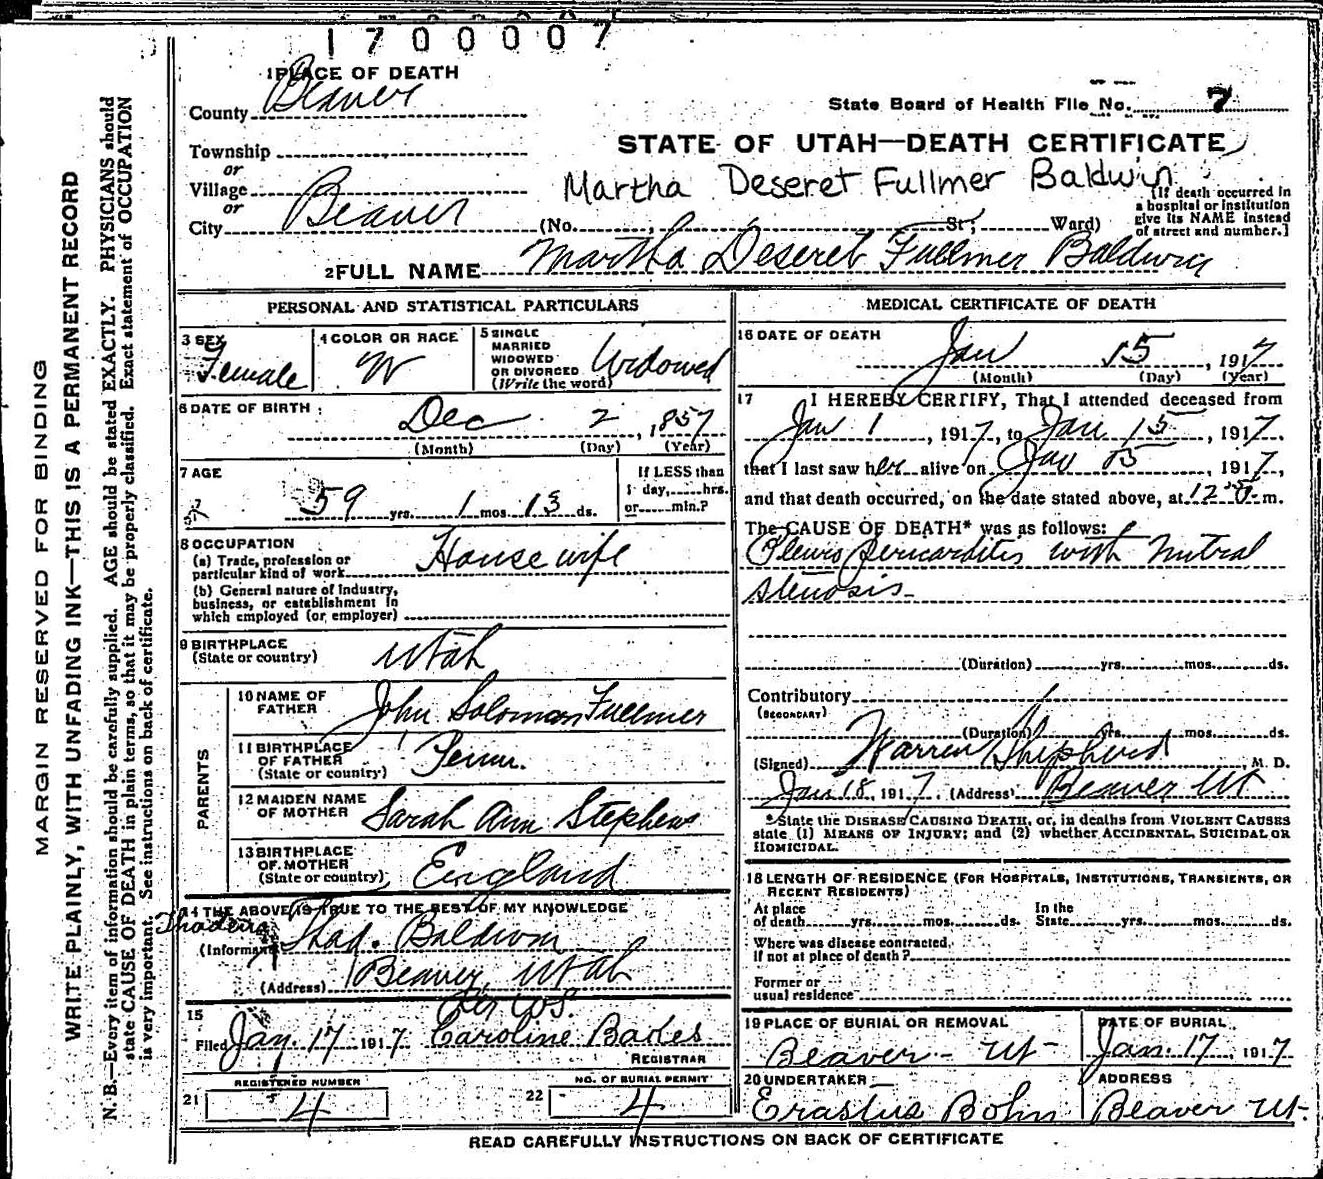 1700007
1 PLACE OF DEATH
County Beaver
State Board of Health File No. 7
Township
or
Village
or
City Beaver
STATE OF UTAH—DEATH CERTIFICATE
Martha Deseret Fullmer Baldwin
(No. , St; Ward)
[If death occurred in
a hospital or institution
give its NAME instead
of street and number.]
2 FULL NAME Martha Deseret Fullmer Baldwin
PERSONAL AND STATISTICAL PARTICULARS
3 SEX
Female
4 COLOR OR RACE
W
5 SINGLE
MARRIED
WIDOWED
OR DIVORCED
(Write the word)
Widowed
6 DATE OF BIRTH
Dec 2, 1857
(Month) (Day) (Year)
7 AGE
59 yrs. 1 mos. 13 ds.
If LESS than
1 day, hrs.
or min.?
8 OCCUPATION
(a) Trade, profession or
particular kind of work Housewife
(b) General nature of industry,
business, or establishment in
which employed (or employer)
9 BIRTHPLACE
(State or country)
Utah
PARENTS
10 NAME OF
FATHER
John Soloman Fullmer
11 BIRTHPLACE
OF FATHER
(State or country)
Penn.
12 MAIDEN NAME
OF MOTHER
Sarah Ann Stephens
13 BIRTHPLACE
OF MOTHER
(State or country)
England
14 THE ABOVE IS TRUE TO THE BEST OF MY KNOWLEDGE
Thadeus
(Informant) Thad. Baldwin
(Address) Beaver, Utah
15
Filed Jan. 17 1917 Caroline Bakes
REGISTRAR
21 REGISTERED NUMBER
4
22 NO. OF BURIAL PERMIT
4
MEDICAL CERTIFICATE OF DEATH
16 DATE OF DEATH
Jan 15, 1917
(Month) (Day) (Year)
17 I HEREBY CERTIFY, That I attended deceased from
Jan 1, 1917, to Jan 15, 1917.
that I last saw her alive on Jan 15, 1917,
and that death occurred, on the date stated above, at 12 m.
The CAUSE OF DEATH* was as follows:
Pleuro pericarditis with mitral
stenosis
(Duration) yrs. mos. ds.
Contributory
(SECONDARY)
(Duration) yrs. mos. ds.
(Signed) Warren Shepherd, M. D.
Jan 18, 1917. (Address) Beaver Ut
*State the DISEASE CAUSING DEATH, or, in deaths from VIOLENT CAUSES
state (1) MEANS OF INJURY; and (2) whether ACCIDENTAL, SUICIDAL OR
HOMICIDAL.
18 LENGTH OF RESIDENCE (FOR HOSPITALS, INSTITUTIONS, TRANSIENTS, OR
RECENT RESIDENTS)
At place
of death yrs. mos. ds.
In the
State yrs. mos. ds.
Where was disease contracted,
if not at place of death?
Former or
usual residence
19 PLACE OF BURIAL OR REMOVAL
Beaver - Ut -
DATE OF BURIAL
Jan. 17, 1917
20 UNDERTAKER
Erastus Bohn
ADDRESS
Beaver Ut-
READ CAREFULLY INSTRUCTIONS ON BACK OF CERTIFICATE
MARGIN RESERVED FOR BINDING
WRITE PLAINLY, WITH UNFADING INK—THIS IS A PERMANENT RECORD
N. B.—Every item of information should be carefully supplied. AGE should be stated EXACTLY. PHYSICIANS should
state CAUSE OF DEATH in plain terms, so that it may be properly classified. Exact statement of OCCUPATION
is very important. See instructions on back of certificate.